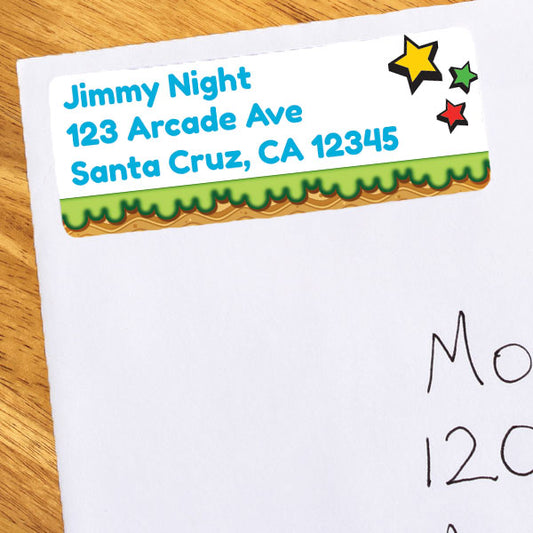 Jimmy Night
123 Arcade Ave
Santa Cruz, CA 12345
Mo
120